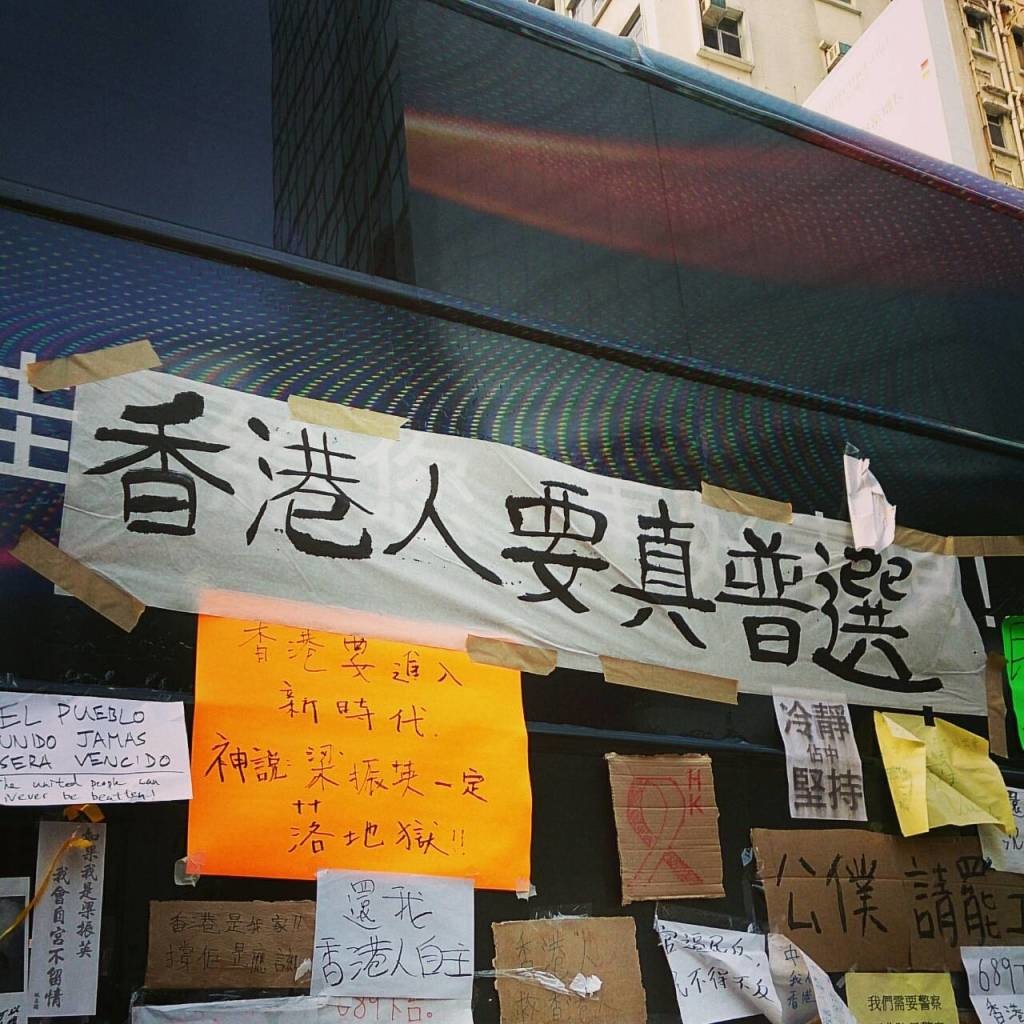 香港人要真普選
香港要進入
新時代.
神説:梁振英一定
落地獄!!
EL PUEBLO
UNIDO JAMAS
SERA VENCIDO
The united people can
never be beaten!
冷靜
佔中
堅持
HK
公僕 請罷工
如果我是梁振英
我會自宮不留情
還我
香港人自主
香港是我家!!
撐佢是應該
香港人
官逼民反
民不得不反
我們需要警察
689
香港
689下台。